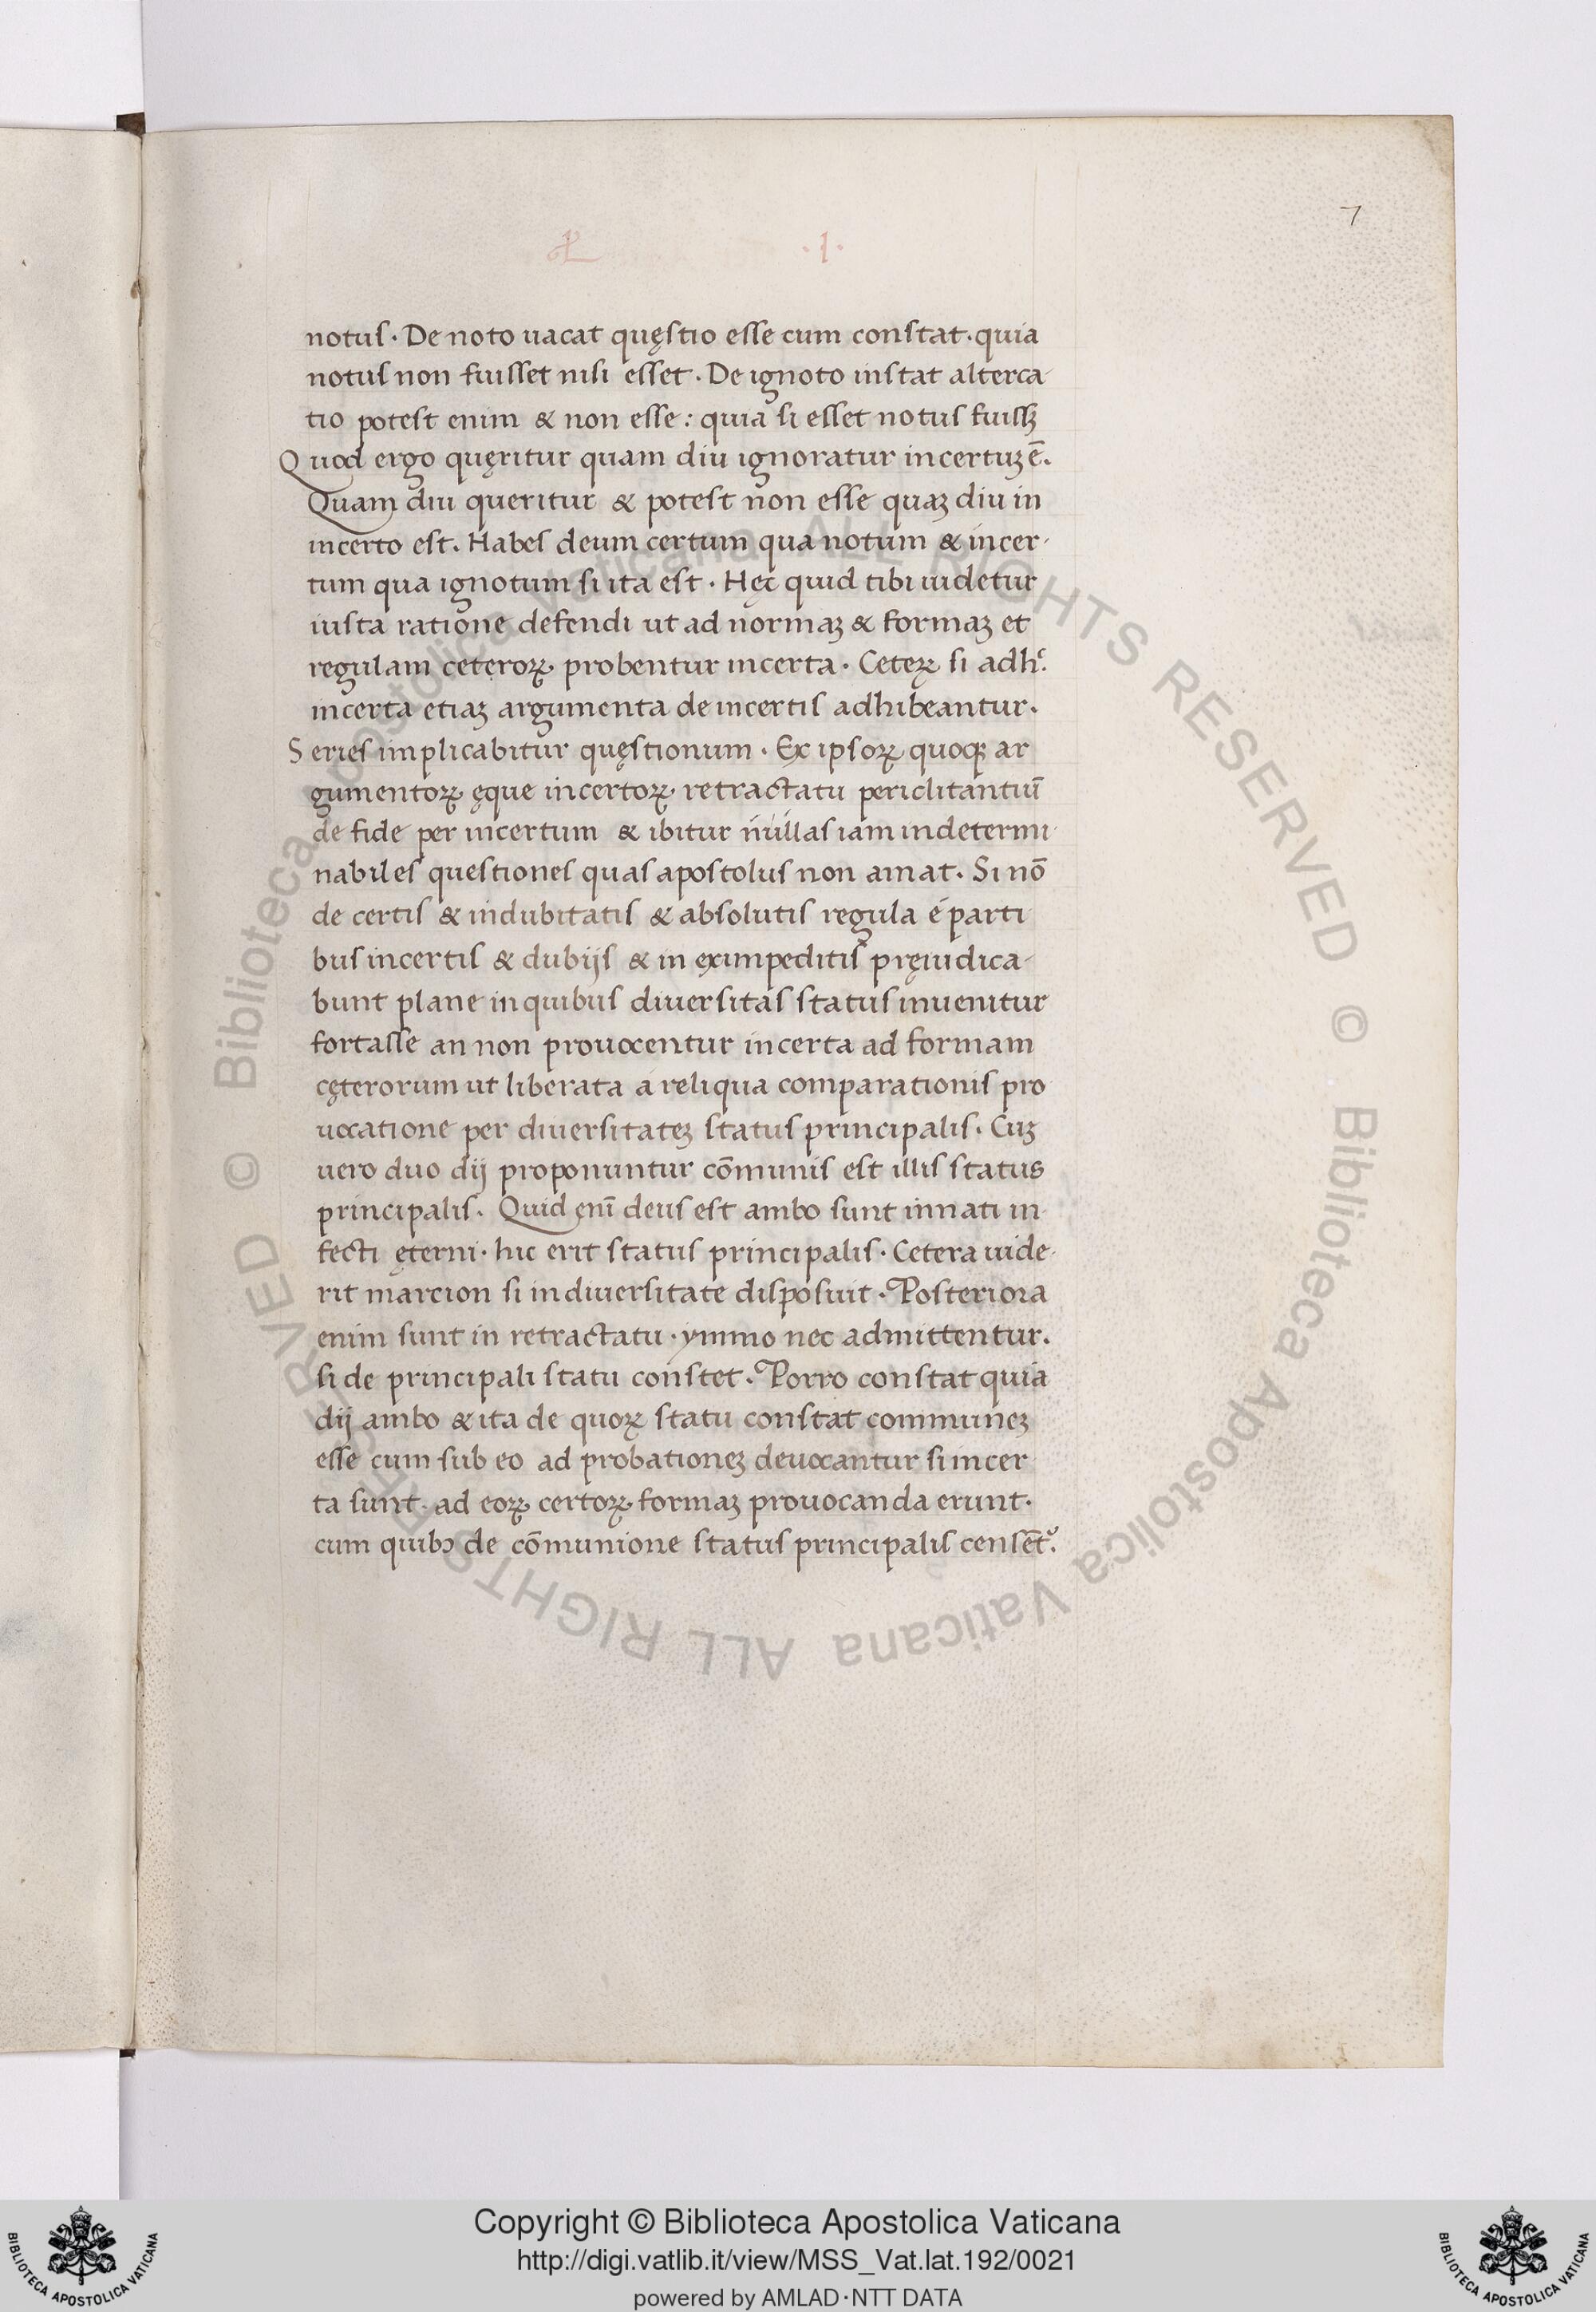 7
·I·
notus· De noto uacat quęstio esse cum constat· quia
notus non fuisset nisi esset· De ignoto instat alterca-
tio potest enim & non esse: quia si esset notus fuissꝫ
Quod ergo quęritur quam diu ignoratur incertuꝫ ē.
Quam diu queritur & potest non esse quaꝫ diu in
incerto est. Habes deum certum qua notum & incer-
tum qua ignotum si ita est· Hęc quid tibi uidetur
iusta ratione defendi ut ad normaꝫ & formaꝫ et
regulam ceteroꝝ probentur incerta· Ceteꝝ si adhᶜ.
incerta etiaꝫ argumenta de incertis adhibeantur.
Series implicabitur quęstionum· Ex ipsoꝝ quoqꝫ ar
gumentoꝝ ęque incertoꝝ retractatu periclitantiū
de fide per incertum & ibitur nullas iam indetermi-
nabiles questiones quas apostolus non amat. Si nō
de certis & indubitatis & absolutis regula é parti
bus incertis & dubijs & in eximpeditis pręiudica-
bunt plane in quibus diuersitas status inuenitur
fortasse an non prouocentur incerta ad formam
cęterorum ut liberata a reliqua comparationis pro
uocatione per diuersitateꝫ status principalis. Cuꝫ
uero duo dij proponuntur cōmunis est illis status
principalis. Quid enī deus est ambo sunt innati in-
fecti ęterni· hic erit status principalis· Cetera uide-
rit marcion si in diuersitate disposuit· Posteriora
enim sunt in retractatu· ymmo nec admittentur.
si de principali statu constet. Porro constat quia
dij ambo & ita de quoꝝ statu constat communeꝫ
esse cum sub eo ad probationeꝫ deuocantur si incer
ta sunt· ad eoꝝ certoꝝ formaꝫ prouocanda erunt·
cum quibꝰ de cōmunione status principalis censēt᷑.
© Biblioteca Apostolica Vaticana ALL RIGHTS RESERVED © Biblioteca Apostolica Vaticana ALL RIGHTS RESERVED
Copyright © Biblioteca Apostolica Vaticana
http://digi.vatlib.it/view/MSS_Vat.lat.192/0021
powered by AMLAD·NTT DATA
BIBLIOTECA APOSTOLICA VATICANA
BIBLIOTECA APOSTOLICA VATICANA